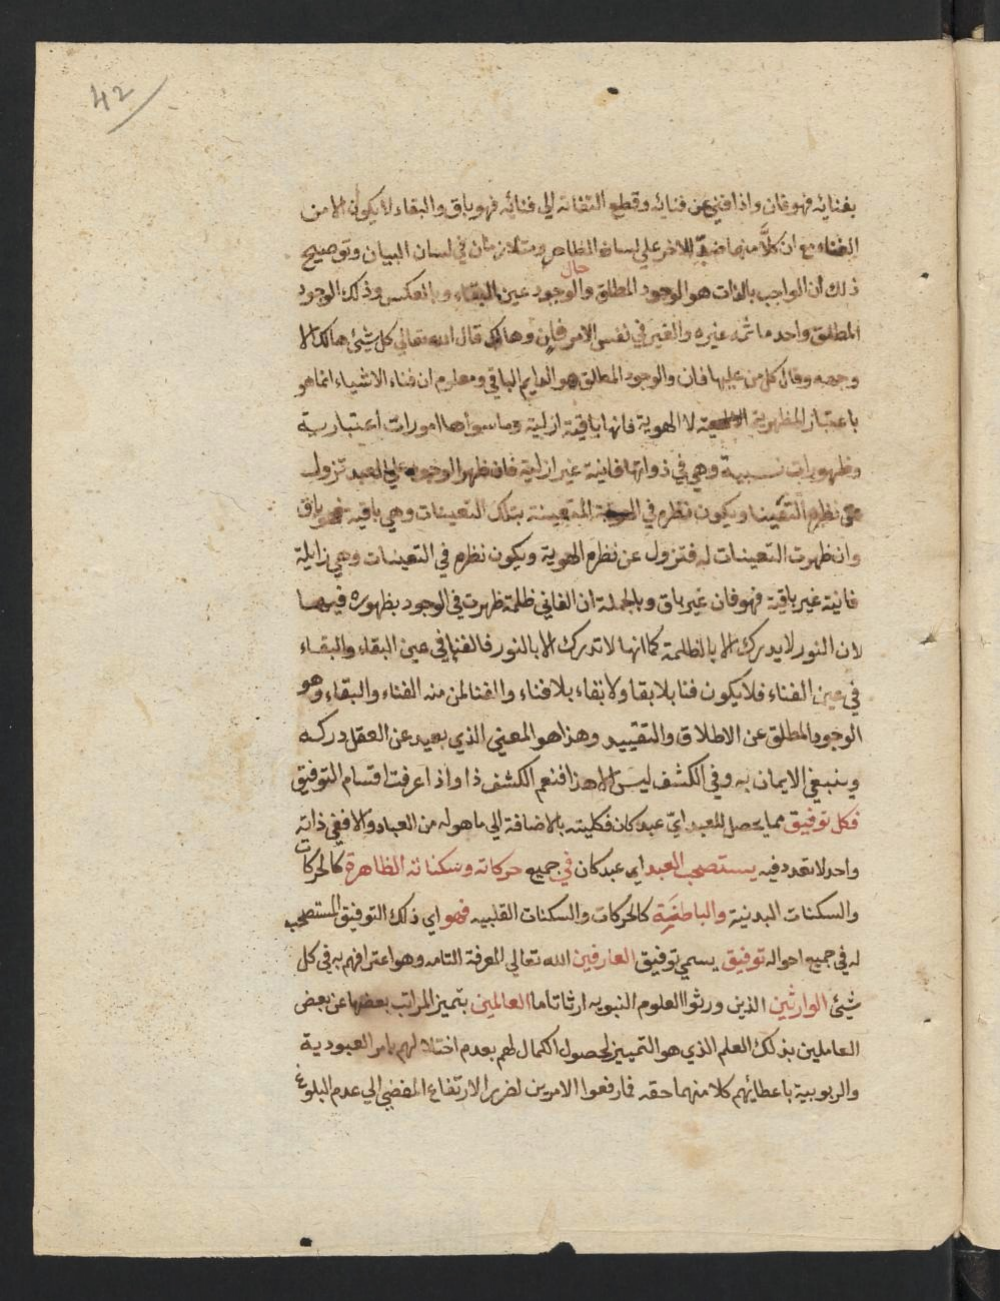 42
بفنائه فهو فان واذا فني عن فنائه وقطع التفاته الي فنائه فهو باق والبقاء لا يكون الا من
الفناء مع ان كلاًّ منهما ضدّ الاخر علي لسان الظاهر ومتلازمان في لسان البيان وتوضيح
حال
ذلك ان الواجب بالذات هو الوجود المطلق والوجود عين البقاء وبالعكس وذلك الوجود
المطلق واحد ما ثمه غيره والغير في نفس الامر فانٍ وهالك قال الله تعالي كل شئ هالك الا
وجهه وقال كل من عليها فان والوجود المطلق هو الدايم الباقي ومعلوم ان فناء الاشياء انما هو
باعتبار المظهرية لا الهوية فانها باقية ازلية وما سواها امورات اعتبارية
وظهورات نسبية وهي في ذواتها فانية غير ازلية فان ظهر الوجود علي العبد تزول
عن نظره التعينات ويكون نظره في المتعينة بتلك التعينات وهي باقية فهو باق
وان ظهرت التعينات له فتزول عن نظره الهوية ويكون نظره في التعينات وهي زايلة
فانية غير باقية فهو فان غير باق وبالجملة ان الفاني ظلمة ظهرت في الوجود بظهوره فيها
لان النور لا يدرك الا بالظلمة كما انها لا تدرك الا بالنور فالفنا في عين البقاء والبقاء
في عين الفناء فلا يكون فنا بلا بقا ولا بقاء بلا فناء والفنا لمن منه الفناء والبقاء وهو
الوجود المطلق عن الاطلاق والتقييد وهذا هو المعني الذي بعيد عن العقل دركه
وينبغي الايمان به وفي الكشف ليس الا هذا فنعم الكشف ذا واذا عرفت اقسام التوفيق
فكل توفيق مما يحصل للعبد ايّ عبد كان فكليته بالاضافة الي ما هو له من العباد والا ففي ذاته
واحد لا تعدد فيه يستصحب العبد اي عبد كان في جميع حركاته وسكناته الظاهرة كالحركات
والسكنات البدنية والباطنية كالحركات والسكنات القلبيه فهو اي ذلك التوفيق المستصحب
له في جميع احواله توفيق يسمي توفيق العارفين الله تعالي المعرفة التامه وهو اعترافهم به في كل
شئ الوارثين الذين ورثوا العلوم النبويه ارثا تاما العالمين بتميز المراتب بعضها عن بعض
العاملين بذلك العلم الذي هو التمييز لحصول الكمال لهم بعدم اختلالهم بامر العبودية
والربوبية باعطائهم كلا منهما حقه فما رفعوا الامرين لضرر الارتفاع المفضي الي عدم البلوغ